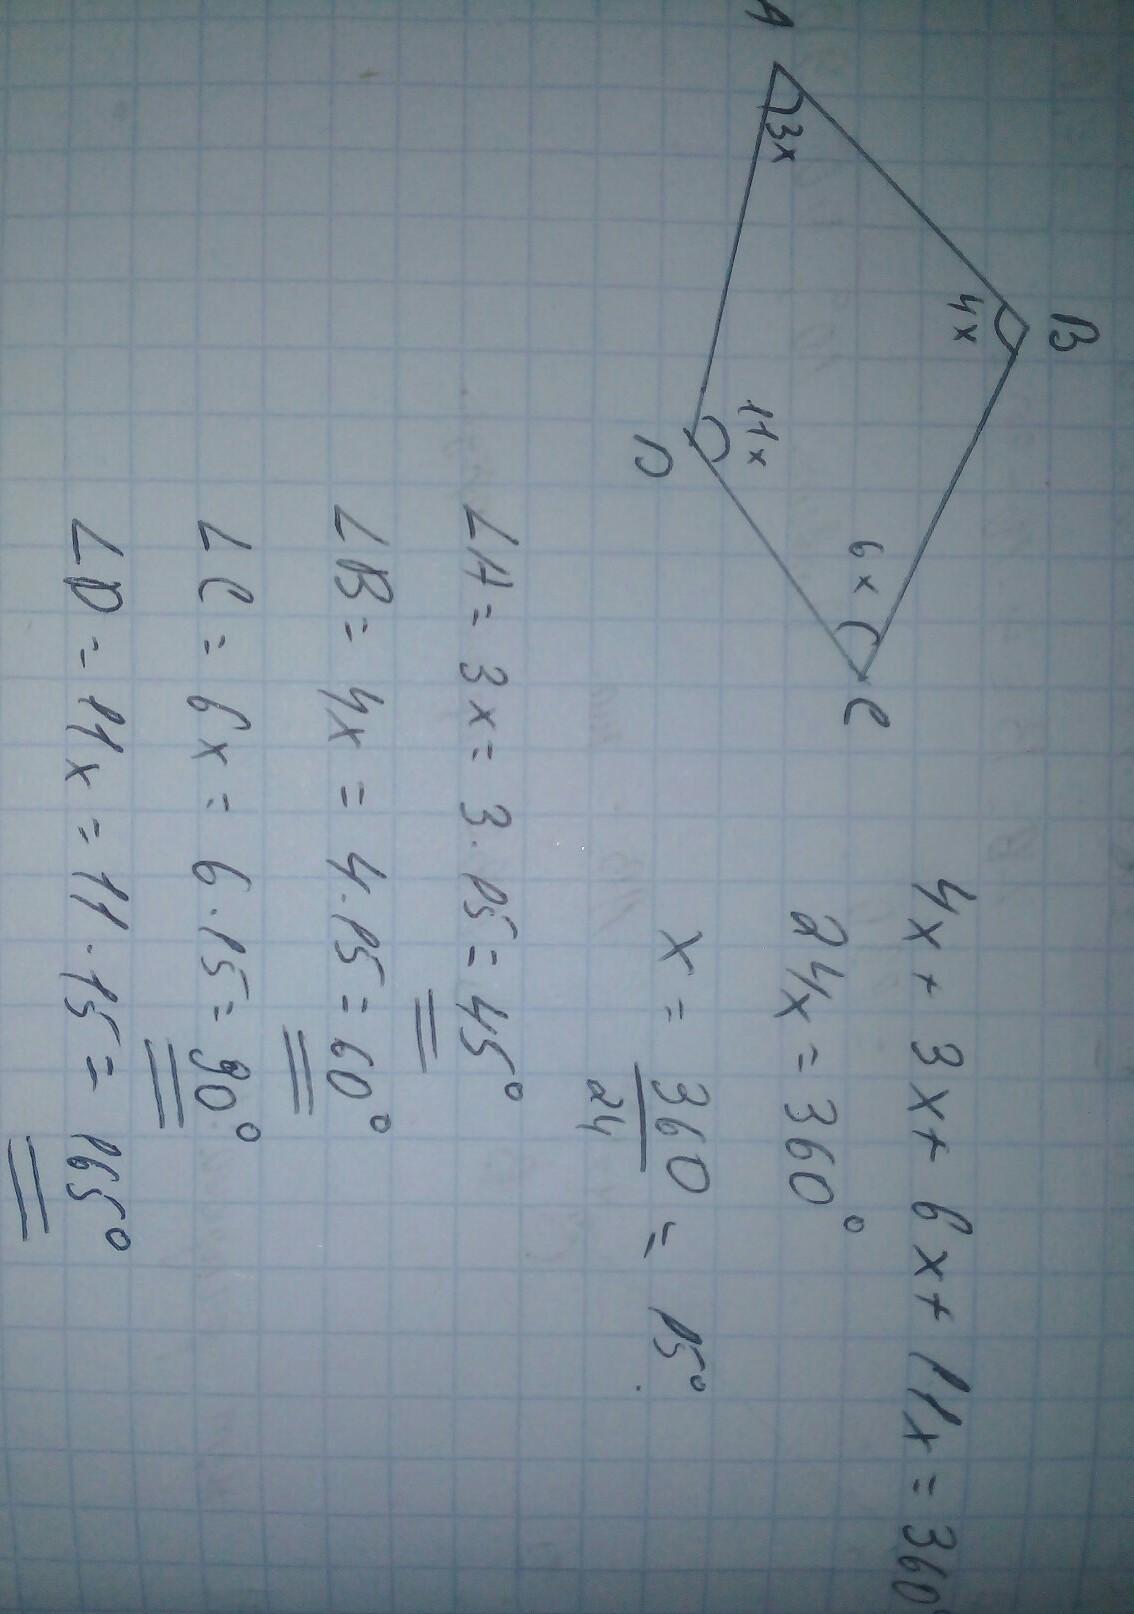 A
B
C
D
3x
4x
6x
11x
4x + 3x + 6x + 11x = 360
24x = 360°
x = 360/24 = 15°
∠A = 3x = 3·15 = 45°
∠B = 4x = 4·15 = 60°
∠C = 6x = 6·15 = 90°
∠D = 11x = 11·15 = 165°